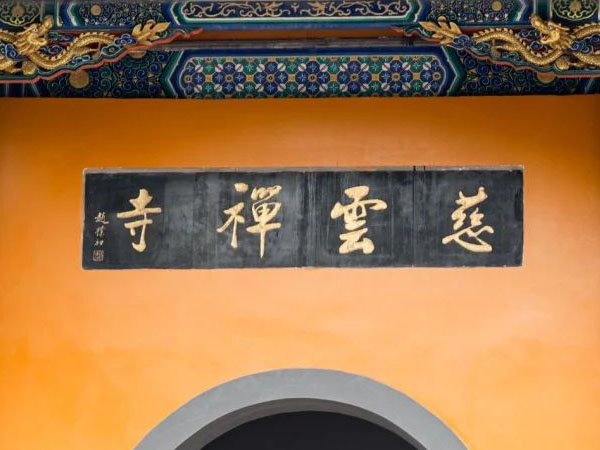 慈雲禪寺
趙樸初